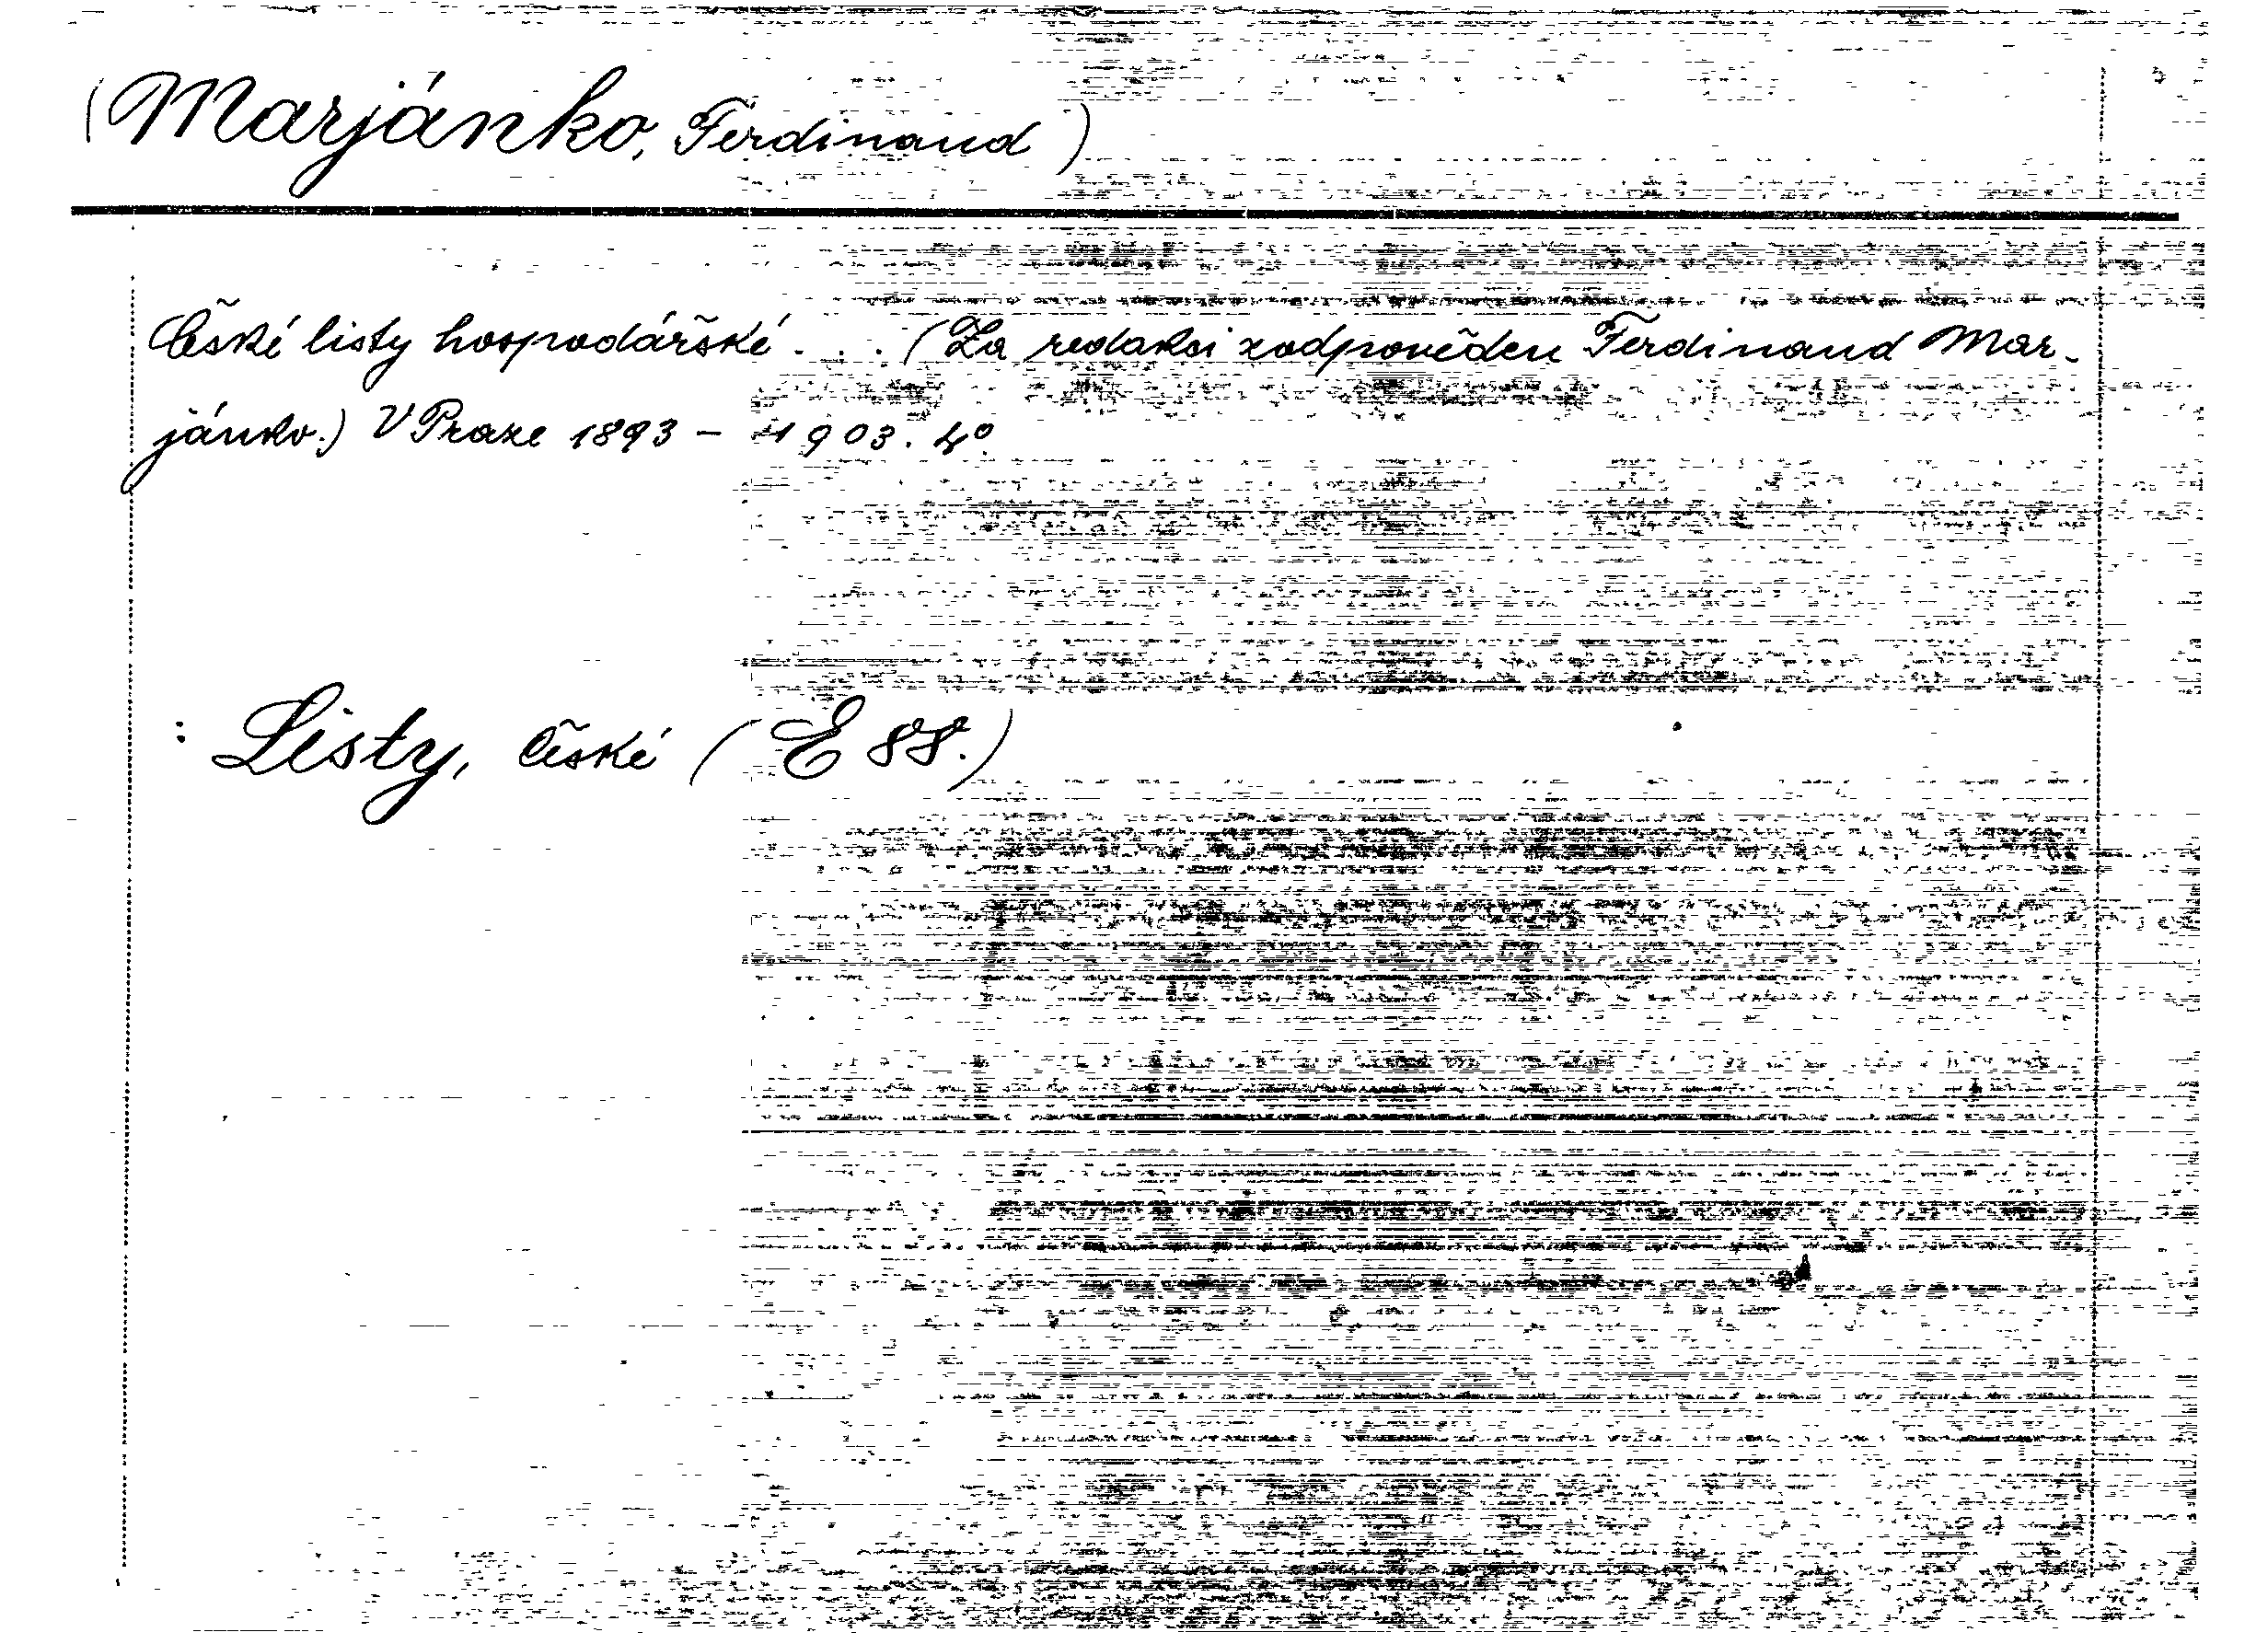 (Marjánko, Ferdinand)
České listy hospodářské . . . (Za redakci zodpověden Ferdinand Mar-
jánko.) V Praze 1893 - 1903. 4°.
: Listy, české (E 88.)